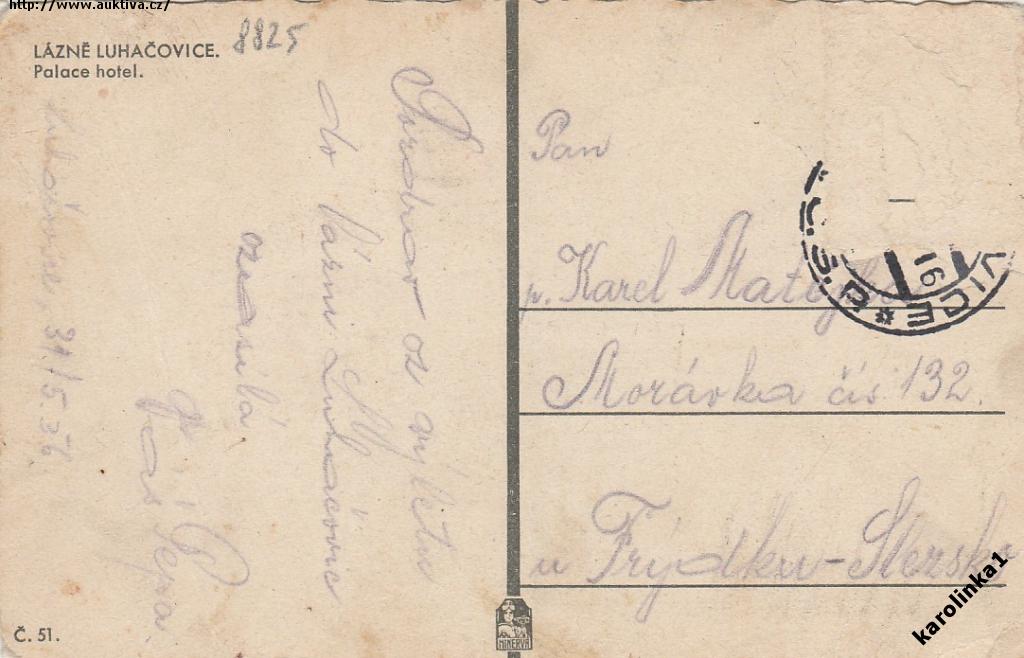 http://www.auktiva.cz/
LÁZNĚ LUHAČOVICE.
Palace hotel.
8825
Pozdrav z výletu
do lázní Luhačovic
zasílá
Váš Pepa.
31/5.36.
Pan
p. Karel
Morávka čís. 132.
u Frýdku-Slezsko
Č.S.R.
VICE
16
Č. 51.
MINERVA
karolinka1